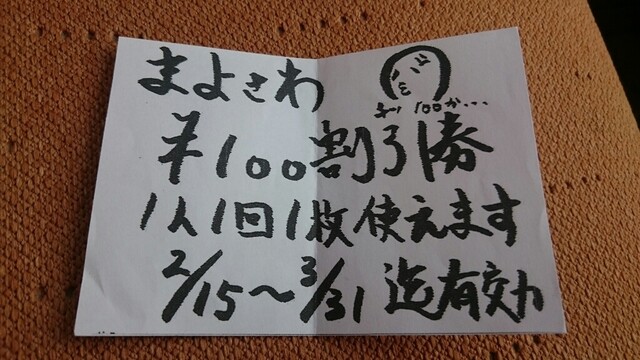 まよさわ
¥100割引券
1人1回1枚使えます
2/15〜3/31迄有効